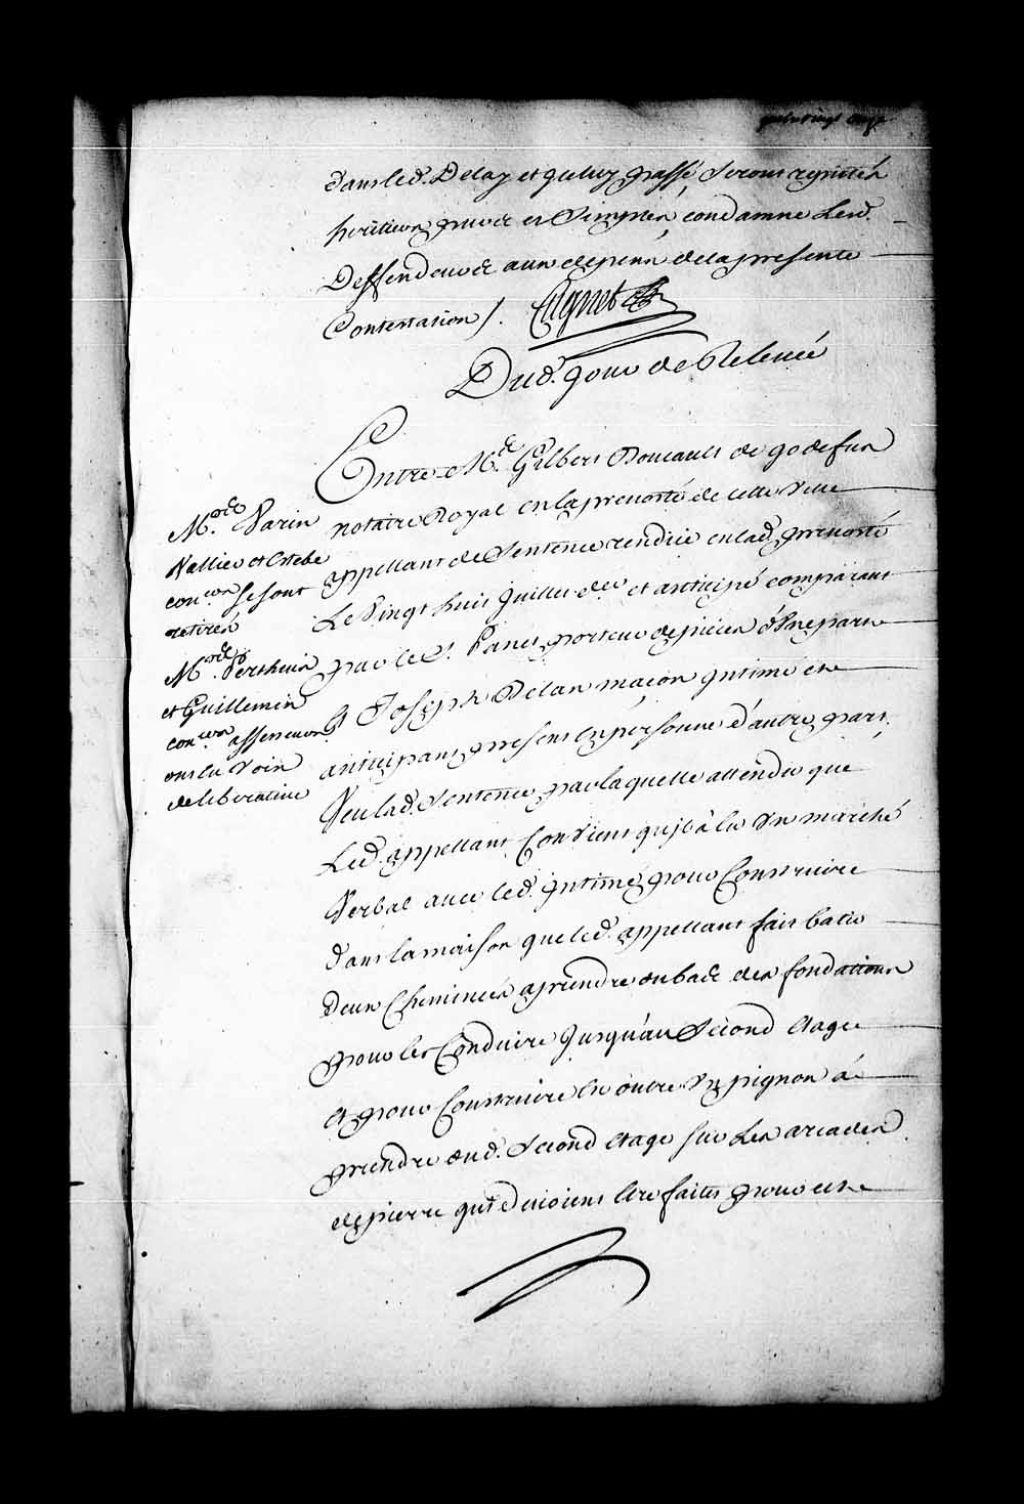 quatrevingt onze
dans led. Delay et qu'eluy passé Seront reputtés
heritiers purs et Simples, condamne lesd.
Deffendeurs aux depens de la presente
Contestation /. Cugnet
Dud. jour de Relevée
Entre Me. Gilbert Boucault de godefus
notaire Royal en la prevosté de cette Ville
appellant de Sentence rendüe en lad. prevosté
Le Vingt huit Juillet der. et anticipé comparant
par le Sr. Panet porteur de pieces d'Une part
Et Joseph Delan maçon Intimé et
anticipant present En personne d'autre part.
Veu lad. Sentence par laquelle attendu que
Led. appellant Convient qu'il à eu Un marché
Verbal avec led. Intimé pour Construire
dans la maison que led. appellant fait batir
deux Cheminées a prendre du bas des fondations
pour les Conduire Jusqu'au Second Etage
Et pour Construire En outre Un pignon à
prendre dud. Second Etage sur Les arcades
de pierre qui devoient Etre faites pour
Mrs. Varin
Vallier et Estebe
coners. se sont
retirés
Mrs. Perthuis
et Guillemin
coners. assesseurs
ont eu Voix
deliberative